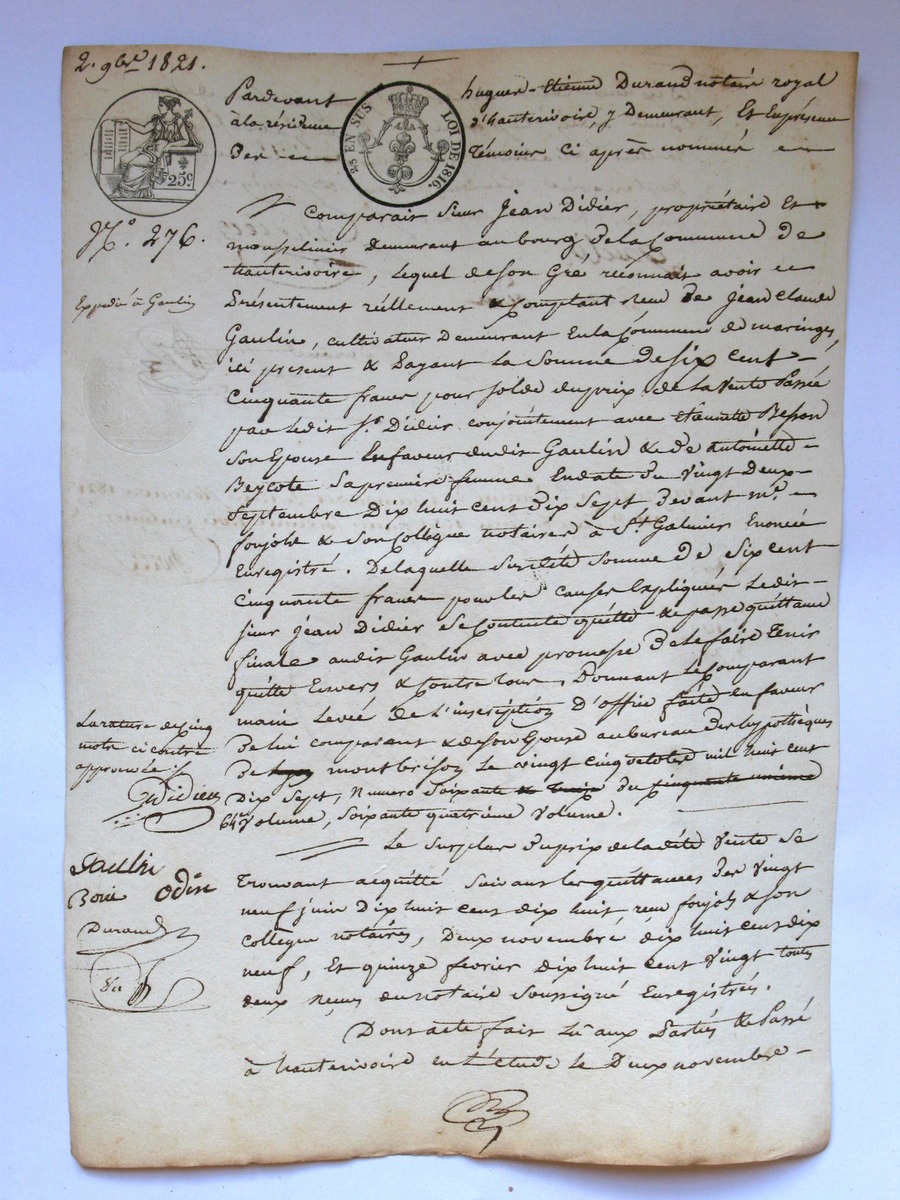 2. 9bre 1821.
Pardevant hugues-Etienne Durand notaire royal
à la résidence d'hauterivoire, y Demeurant, Et En présence
Des témoins ci après nommés
25 c.
25 EN SUS
LOI DE 1816.
N.o 276.
Expédié à Gaulin
comparait Sieur Jean Didier, propriétaire Et
mousselinier demeurant au bourg De la Commune De
hauterivoire, lequel de son Gré reconnait avoir
Présentement réellement & Comptant Recu De Jean Claude
Gaulin, cultivateur Demeurant En la Commune de maringes,
ici present & Payant La Somme de Six cent
Cinquante francs pour solde du prix de la Vente Passée
par Ledit Sr. Didier conjointement avec Etiennette Besson
Son Epouse En faveur dudit Gaulin & de Antoinette
Beycote Sa première femme En date du Vingt Deux
Septembre Dix huit cent Dix Sept Devant me.
foujols & Son Collègue notaires à St. Galmier Enoncée
Enregistré. De laquelle Susdité Somme De Six cent
Cinquante francs pour les Causes Expliquées Ledit
Sieur Jean Didier Se Contente quitte & passe quittance
finale audit Gaulin avec promesse De le faire Tenir
quitte Envers & Contre tous, Donnant le Comparant
main Levée De L'inscription D'office faite En faveur
De lui comparant & de son Epouse au bureau des hypothèques
De montbrison Le vingt cinq octobre mil huit cent
Dix Sept, Numero Soixante & treize du cinquante unième
64me Volume, Soixante quatrième volume.
La rature de cinq
mots ci contre
approuvée
Didier
Gaulin
Odin
Durand
Le Surplus du prix de la dité Vente Se
Trouvant acquitté Suivant les quittances Des Vingt
neuf juin Dix huit cent dix huit, recu foujols & Son
collègue notaires, Deux novembre dix huit cent dix
neuf, Et quinze fevrier Dix huit cent Vingt toutes
deux Reçues du notaire Soussigné Enregistrés.
Dont acte fait Lû aux Parties & Passé
à hauterivoire en L'Etude Le Deux novembre